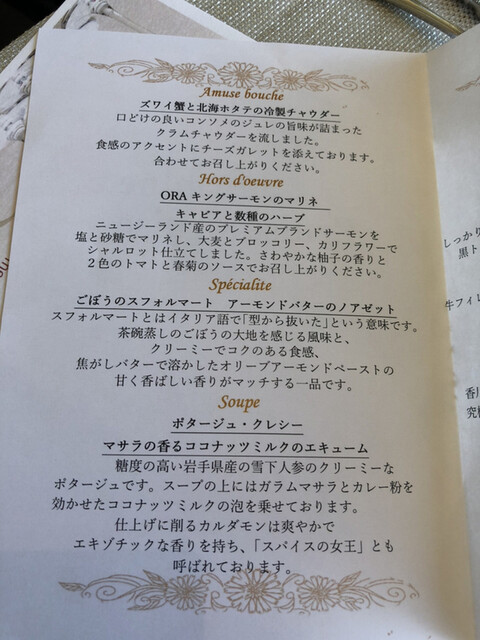 Amuse bouche
ズワイ蟹と北海ホタテの冷製チャウダー
口どけの良いコンソメのジュレの旨味が詰まった
クラムチャウダーを流しました。
食感のアクセントにチーズガレットを添えております。
合わせてお召し上がりください。
Hors d'oeuvre
ORA キングサーモンのマリネ
キャビアと数種のハーブ
ニュージーランド産のプレミアムブランドサーモンを
塩と砂糖でマリネし、大麦とブロッコリー、カリフラワーで
シャルロット仕立てしました。さわやかな柚子の香りと
２色のトマトと春菊のソースでお召し上がりください。
Spécialite
ごぼうのスフォルマート　アーモンドバターのノアゼット
スフォルマートとはイタリア語で「型から抜いた」という意味です。
茶碗蒸しのごぼうの大地を感じる風味と、
クリーミーでコクのある食感、
焦がしバターで溶かしたオリーブアーモンドペーストの
甘く香ばしい香りがマッチする一品です。
Soupe
ポタージュ・クレシー
マサラの香るココナッツミルクのエキューム
糖度の高い岩手県産の雪下人参のクリーミーな
ポタージュです。スープの上にはガラムマサラとカレー粉を
効かせたココナッツミルクの泡を乗せております。
仕上げに削るカルダモンは爽やかで
エキゾチックな香りを持ち、「スパイスの女王」とも
呼ばれております。
しっかり
黒ト
牛フィレ
香川
究極